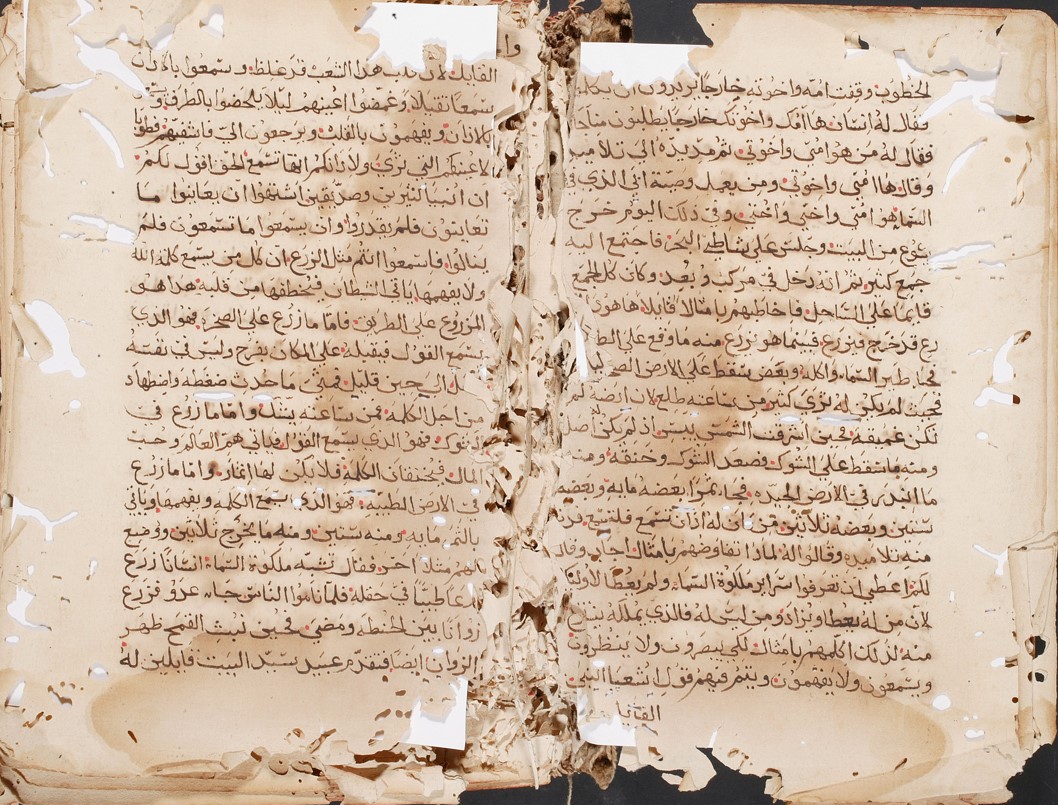 لخطوب وقفت امه واخوته خارجا يريدون ان
فقال له انسان ها امك واخوتك خارجا يطلبون
فقال له من هو امي واخوتي ثم مد يده الى تلاميد
وقال ها امي واخوتي ومن يعمل وصية ابي الذي في
السما هو امي واخي واختي وفي ذلك اليوم خرج
يشوع من البيت وجلس على شاطي البحر فاجتمع اليه
جمع كثير ثم انه دخل في مركب وبعد وكان كل الجمع
قايما على الساحل فاخاطبهم بامثالا قايلا ها هو
رع قد خرج ليزرع فبينما هو يزرع منه ما وقع على الط
فجا طير السماء واكله وبعض سقط على الارض
بحيث لم يكن له ثرى كثير من ساعته طلع لان ارضه لم
تكن عميقه فحين اشرقت الشمس يبس اذ لم يكن اصل
ومنه ما سقط على الشوك فصعد الشوك وخنقه ومنه
ما ابتدر في الارض الجيده فجاء ثمرا بعضه مايه وبعضه
ستين وبعضه ثلاثين من كان له اذان تسمع فليسمع فدنا
منه تلاميده وقالوا له لماذا تفاوضهم بامثال اجاب وقال
لكم اعطي ان تعرفوا سراير ملكوة السماء ولم يعطا لاولئك
لان من له يعطا ويزاد ومن ليس له فالذي يملكه
منه لذلك اكلمهم بامثال لكي يبصرون ولا ينظرون
ويسمعون ولا يفهمون ويتم فيهم قول اشعيا النبي
القايل
القايل لان قلب هذا الشعب قد غلظ وسمعوا بالاذان
سمعا ثقيلا وغمضوا اعينهم ليلا يلحضوا بالطرف
بلاذان ويفهمون بالقلب ويرجعون الي فاشفيهم فطوبا
لاعينكم التي ترى ولاذانكم انها تسمع الحق اقول لكم
ان انبيا كثيرين وصديقين اشتهوا ان يعاينوا ما
تعاينون فلم يقدروا وان يسمعوا ما تسمعون فلم
ينالوا فاستمعوا انتم مثل الزرع ان كل من يسمع كلمة الله
ولا يفهمها ياتي الشيطان فيخطفها من قلبه هدا هو
المزروع على الطريق فاما ما زرع على الصخر فهو الدي
يسمع القول فيقبله على المكان بفرح وليس في نفسه
الى حين قليل فمتى ما حدث ضغطه واضطهاد
من اجل الكلمه فمن ساعته يشك واما ما زرع في
الشوك فهو الدي يسمع القول فياتي هم العالم وحب
المال فيختنقان الكلمه فلا يكن لها اثمار واما ما زرع
في الارض الطيبه فهو الذي يسمع الكلمه ويفهمها وياتي
بالثمر مايه ومنه ستين ومنه ما يخرج ثلاثين ووضع
لهم مثلا اخر فقال تشبه ملكوة السماء انسانا زرع
زرعا طيبا في حقله فلما ناموا الناس جاء عدو فزرع
زوانا بين الحنطه ومضى فحين نبت القمح ظهر
الزوان ايضا فتقدم عبيد سيد البيت قايلين له